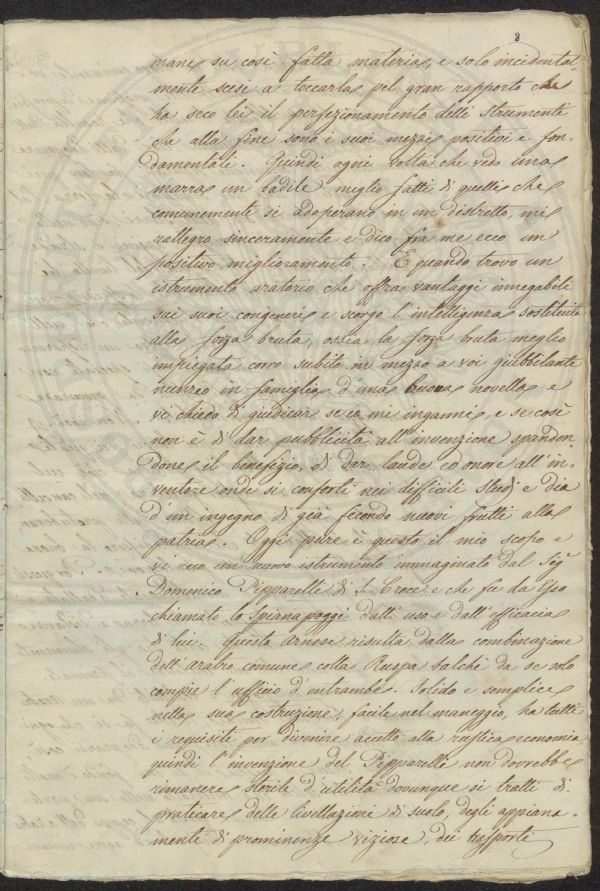 2
mane su così fatta materia, e solo incidental-
mente scesi a toccarla pel gran rapporto che
ha seco lei il perfezionamento delli strumenti
che alla fine sono i suoi mezzi positivi e fon-
damentali. Quindi ogni volta che vedo una
marra un badile meglio fatti di quelli che
comunemente si adoperano in un distretto, mi
rallegro sinceramente e dico fra me ecco un
positivo miglioramento. E quando trovo un
istrumento aratorio che offra vantaggi innegabili
sui suoi congeneri e scorgo l'intelligenza sostituita
alla forza bruta, ossia la forza bruta meglio
impiegata corro subito in mezzo a voi giubbilante
nunzio in famiglia d'una buona novella e
vi chiedo di giudicar se io mi inganni, e se così
non è di dar pubblicità all'invenzione spanden
done il benefizio, di dar laude ed onore all'in-
ventore onde si conforti nei difficili studj e dia
d'un ingegno di già fecondo nuovi frutti alla
patria. Oggi pure è questo il mio scopo e
vi reco un nuovo istrumento immaginato dal Sigr
Domenico Pipparelli di S. Croce e che fu da Esso
chiamato lo Spianapoggi dall'uso e dall'efficacia
di lui. Questo Arnese risulta dalla combinazione
dell'aratro comune colla Ruspa talchè da se solo
compie l'ufficio d'entrambe. Solido e semplice
nella sua costruzione, facile nel maneggio, ha tutti
i requisiti per divenire accetto alla rustica economia,
quindi l'invenzione del Pipparelli non dovrebbe
rimanere sterile d'utilità dovunque si tratti di
praticare delle livellazioni di suolo, degli appiana-
menti di prominenze viziose, dei trasporti